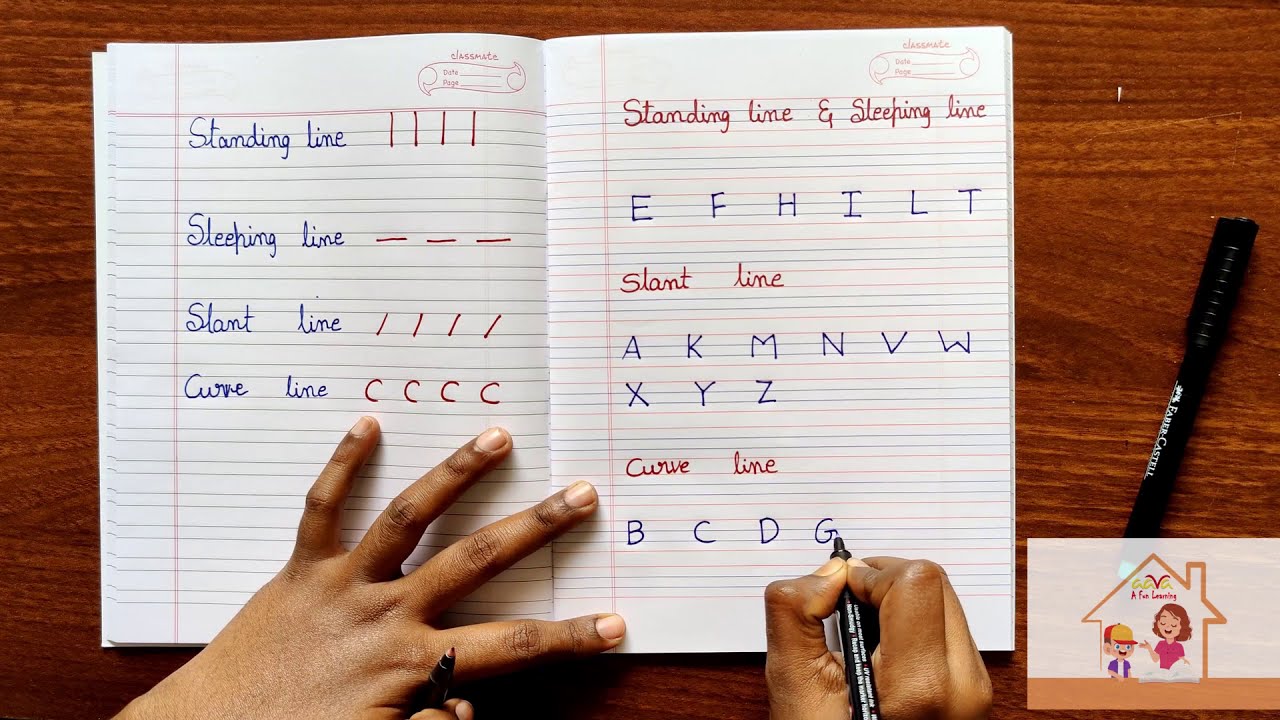 classmate
Date
Page
Standing line | | | |
Sleeping line — — —
Slant line / / / /
Curve line C C C C
classmate
Date
Page
Standing line & Sleeping line
E F H I L T
Slant line
A K M N V W
X Y Z
Curve line
B C D G
FABER-CASTELL
aava
A Fun Learning